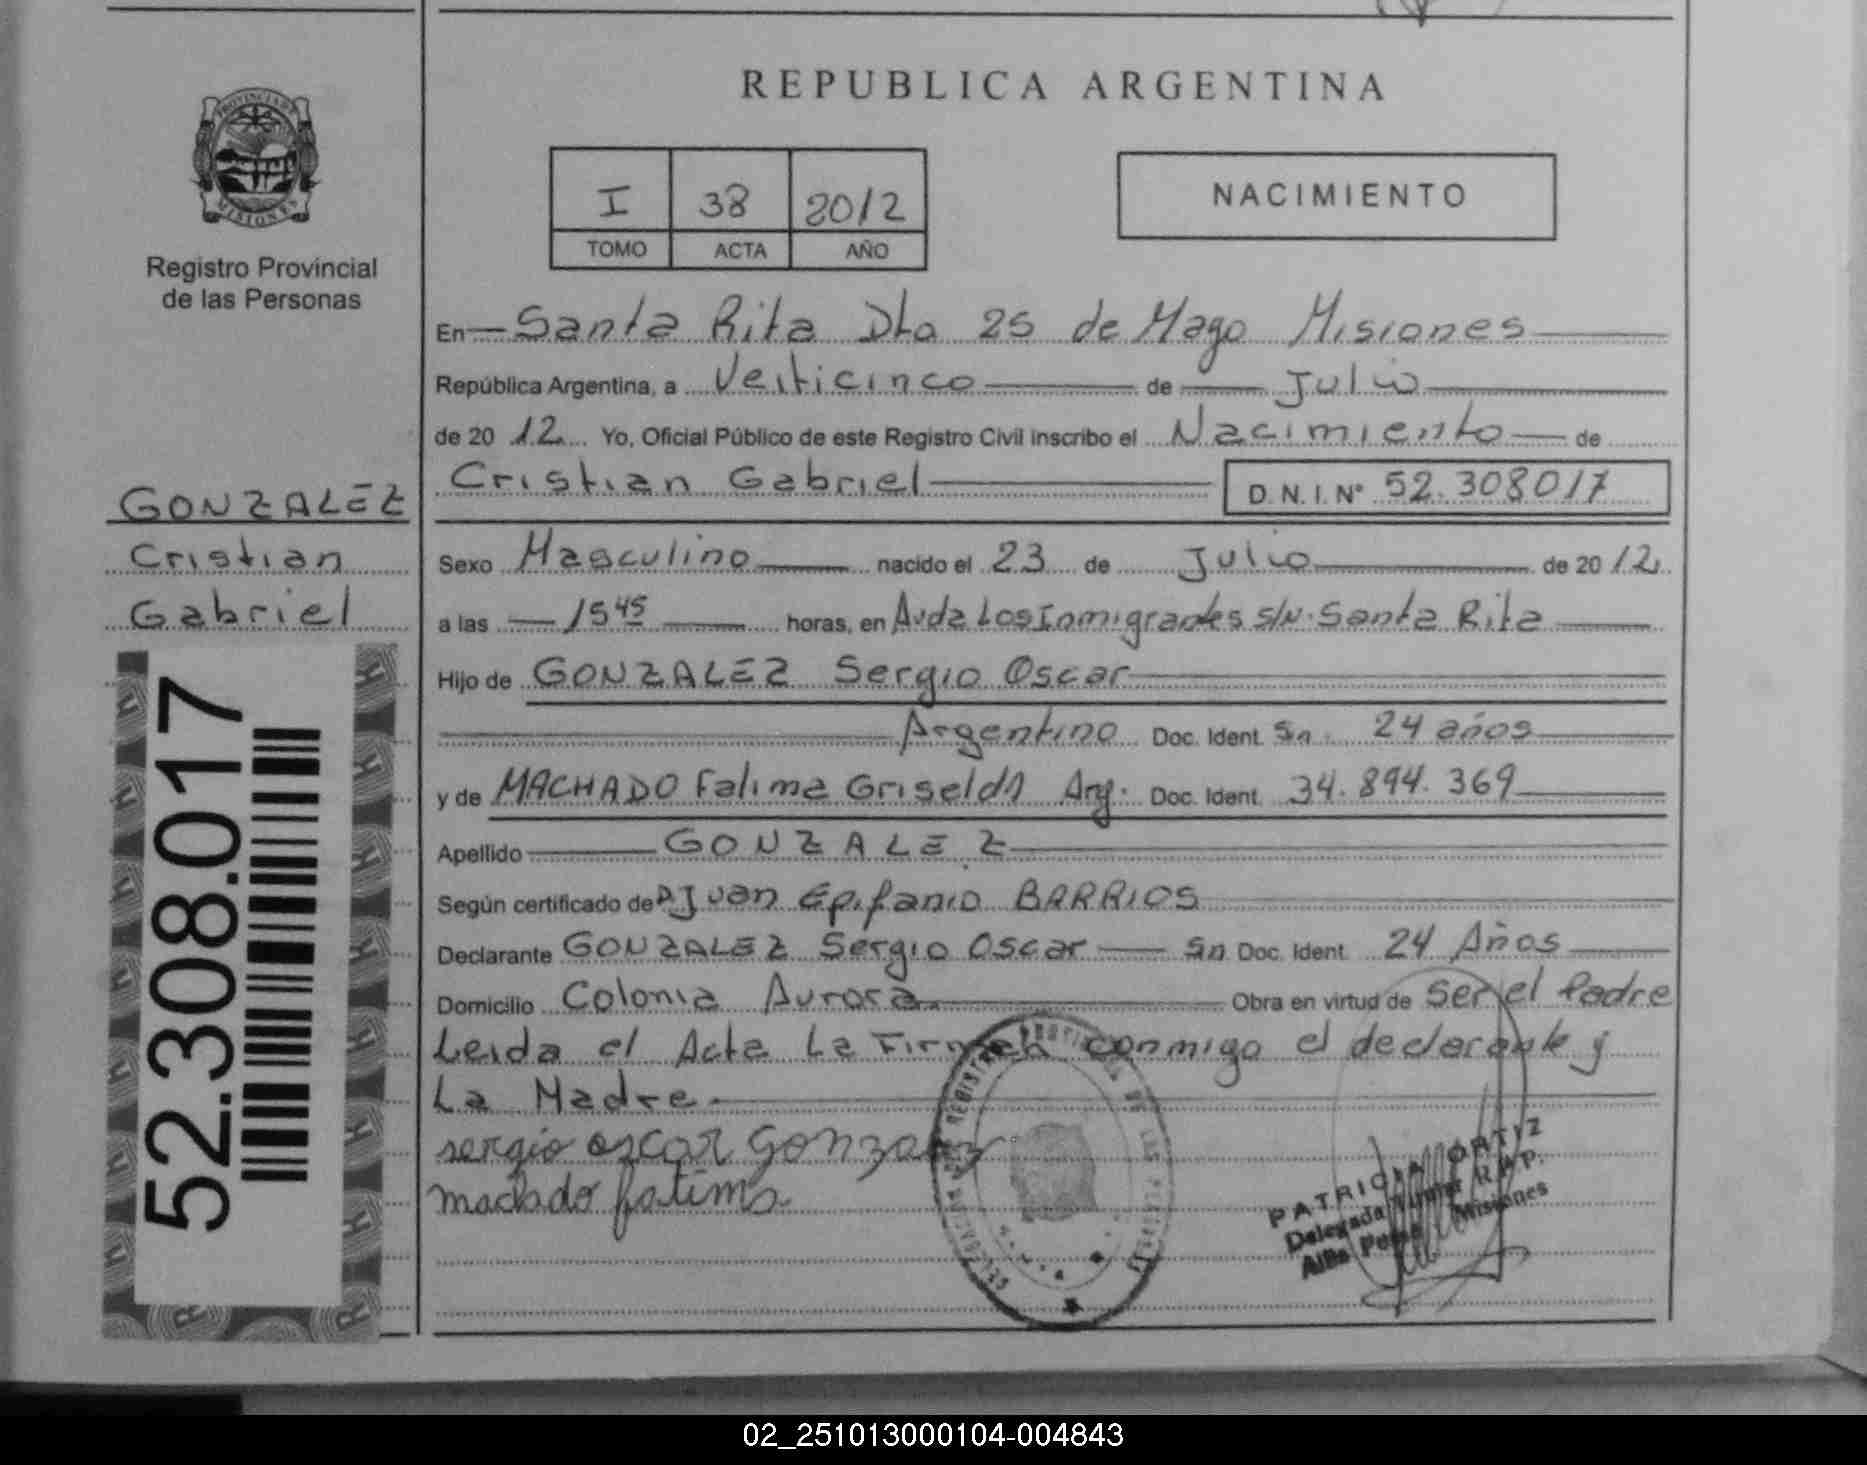 REPUBLICA ARGENTINA
PROVINCIA DE
MISIONES
Registro Provincial
de las Personas
I 38 2012
TOMO ACTA AÑO
NACIMIENTO
En Santa Rita Dto 25 de Mayo Misiones
República Argentina, a Veiticinco de Julio
de 20 12 Yo, Oficial Público de este Registro Civil inscribo el Nacimiento de
Cristian Gabriel D.N.I. Nº 52.308017
GONZALEZ
Cristian
Gabriel
52.308.017
Sexo Masculino nacido el 23 de Julio de 20 12
a las 15 45 horas, en Avda Los Inmigrantes S/N. Santa Rita
Hijo de GONZALEZ Sergio Oscar
Argentino Doc. Ident. Sn 24 años
y de MACHADO Fatima Griselda Arg. Doc. Ident. 34.894.369
Apellido GONZALEZ
Según certificado de Juan Epifanio BARRIOS
Declarante GONZALEZ Sergio Oscar Sn Doc. Ident. 24 Años
Domicilio Colonia Aurora Obra en virtud de ser el Padre
Leida el Acta La Firman conmigo el declarante y
La Madre
sergio oscar Gonzalez
machado fatima
PATRICIA ORTIZ
Delegada Titular R.P.P.
Alba Posse Misiones
02_251013000104-004843